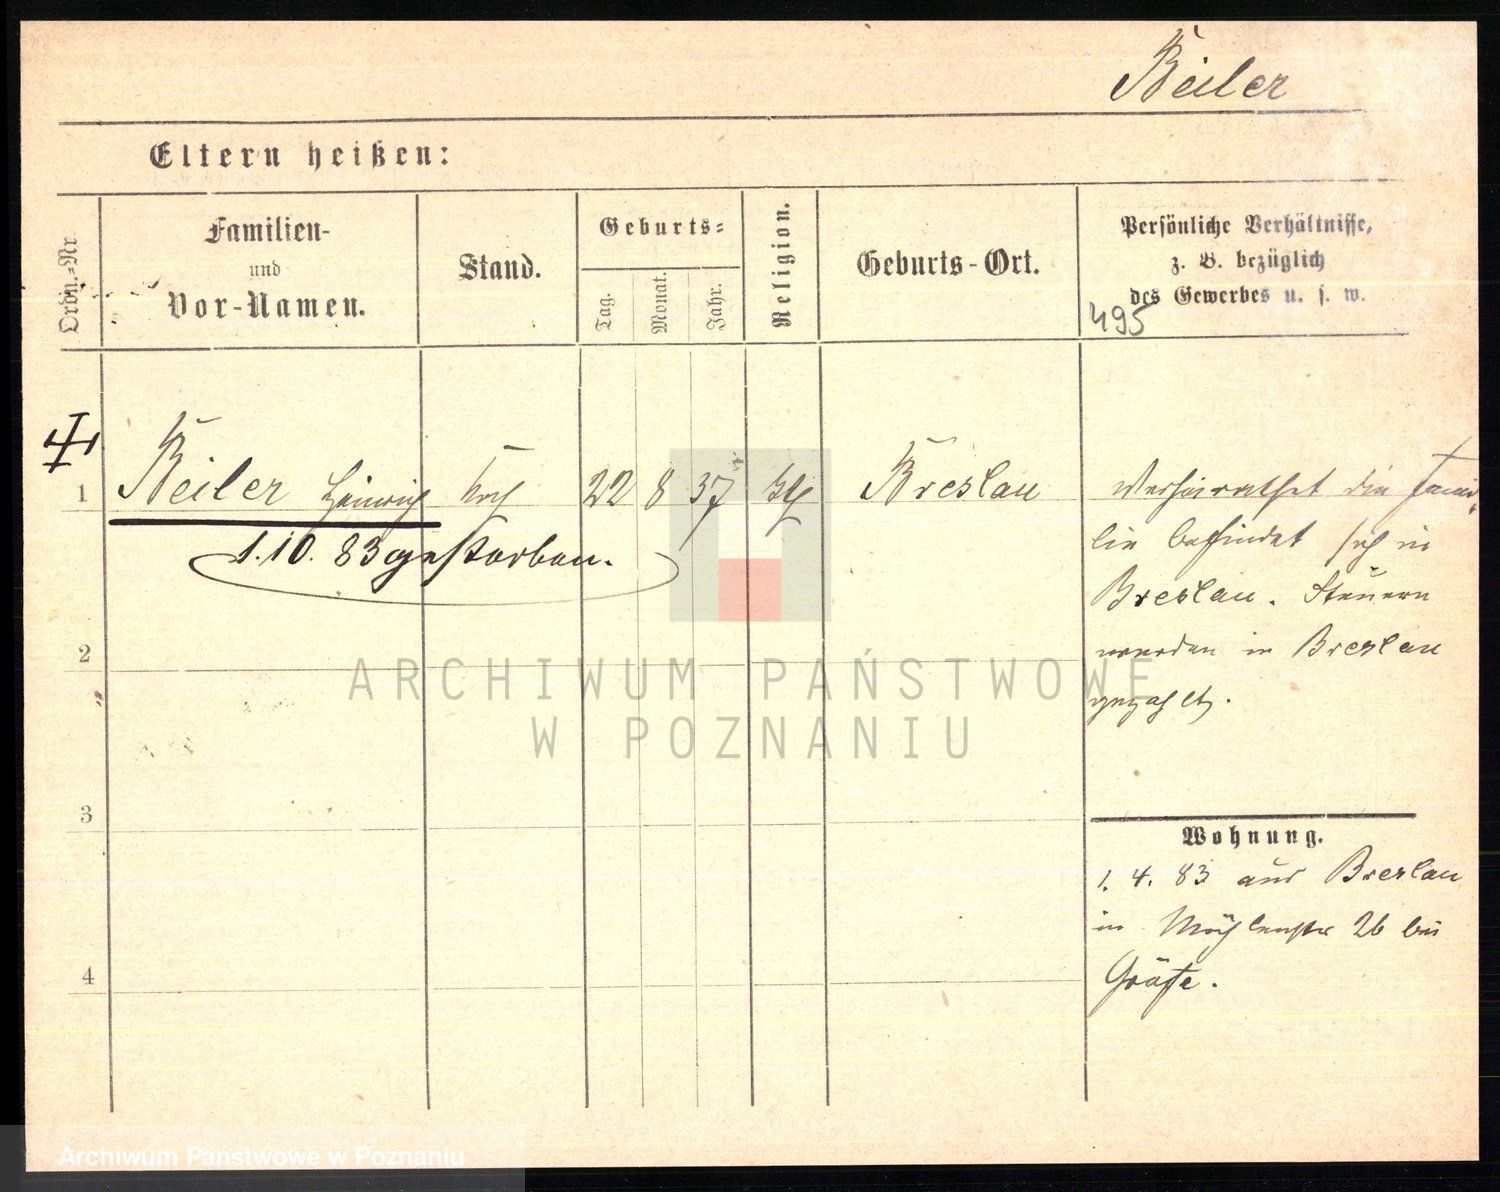 Beiler
Eltern heißen:
Ordn.-Nr.
Familien-
und
Vor-Namen.
Stand.
Geburts-
Tag.
Monat.
Jahr.
Religion.
Geburts-Ort.
Persönliche Verhältnisse,
z. B. bezüglich
des Gewerbes u. s. w.
495
1 Beiler Heinrich Koch 22 8 37 Breslau
1. 10. 83 gestorben.
Verheirathet die Fami-
lie befindet sich in
Breslau. Steuern
werden in Breslau
gezahlt.
2
3
4
Wohnung.
1. 4. 83 aus Breslau
in Mühlenstr 26 bei
Gräfe.
ARCHIWUM PAŃSTWOWE
W POZNANIU
Archiwum Państwowe w Poznaniu